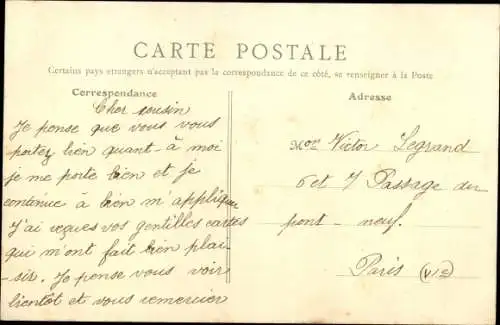 CARTE POSTALE
Certains pays etrangers n'acceptant pas la correspondance de ce côté, se renseigner à la Poste
Correspondance
Adresse
Cher cousin
Je pense que vous vous
portez bien quant-à moi
je me porte bien et je
continue à bien m'applique
J'ai reçues vos gentilles cartes
qui m'ont fait bien plai-
-sir. Je pense vous voir
bientôt et vous remercier
Victor Legrand
6 et 7 Passage du
pont-neuf.
Paris (VIe)